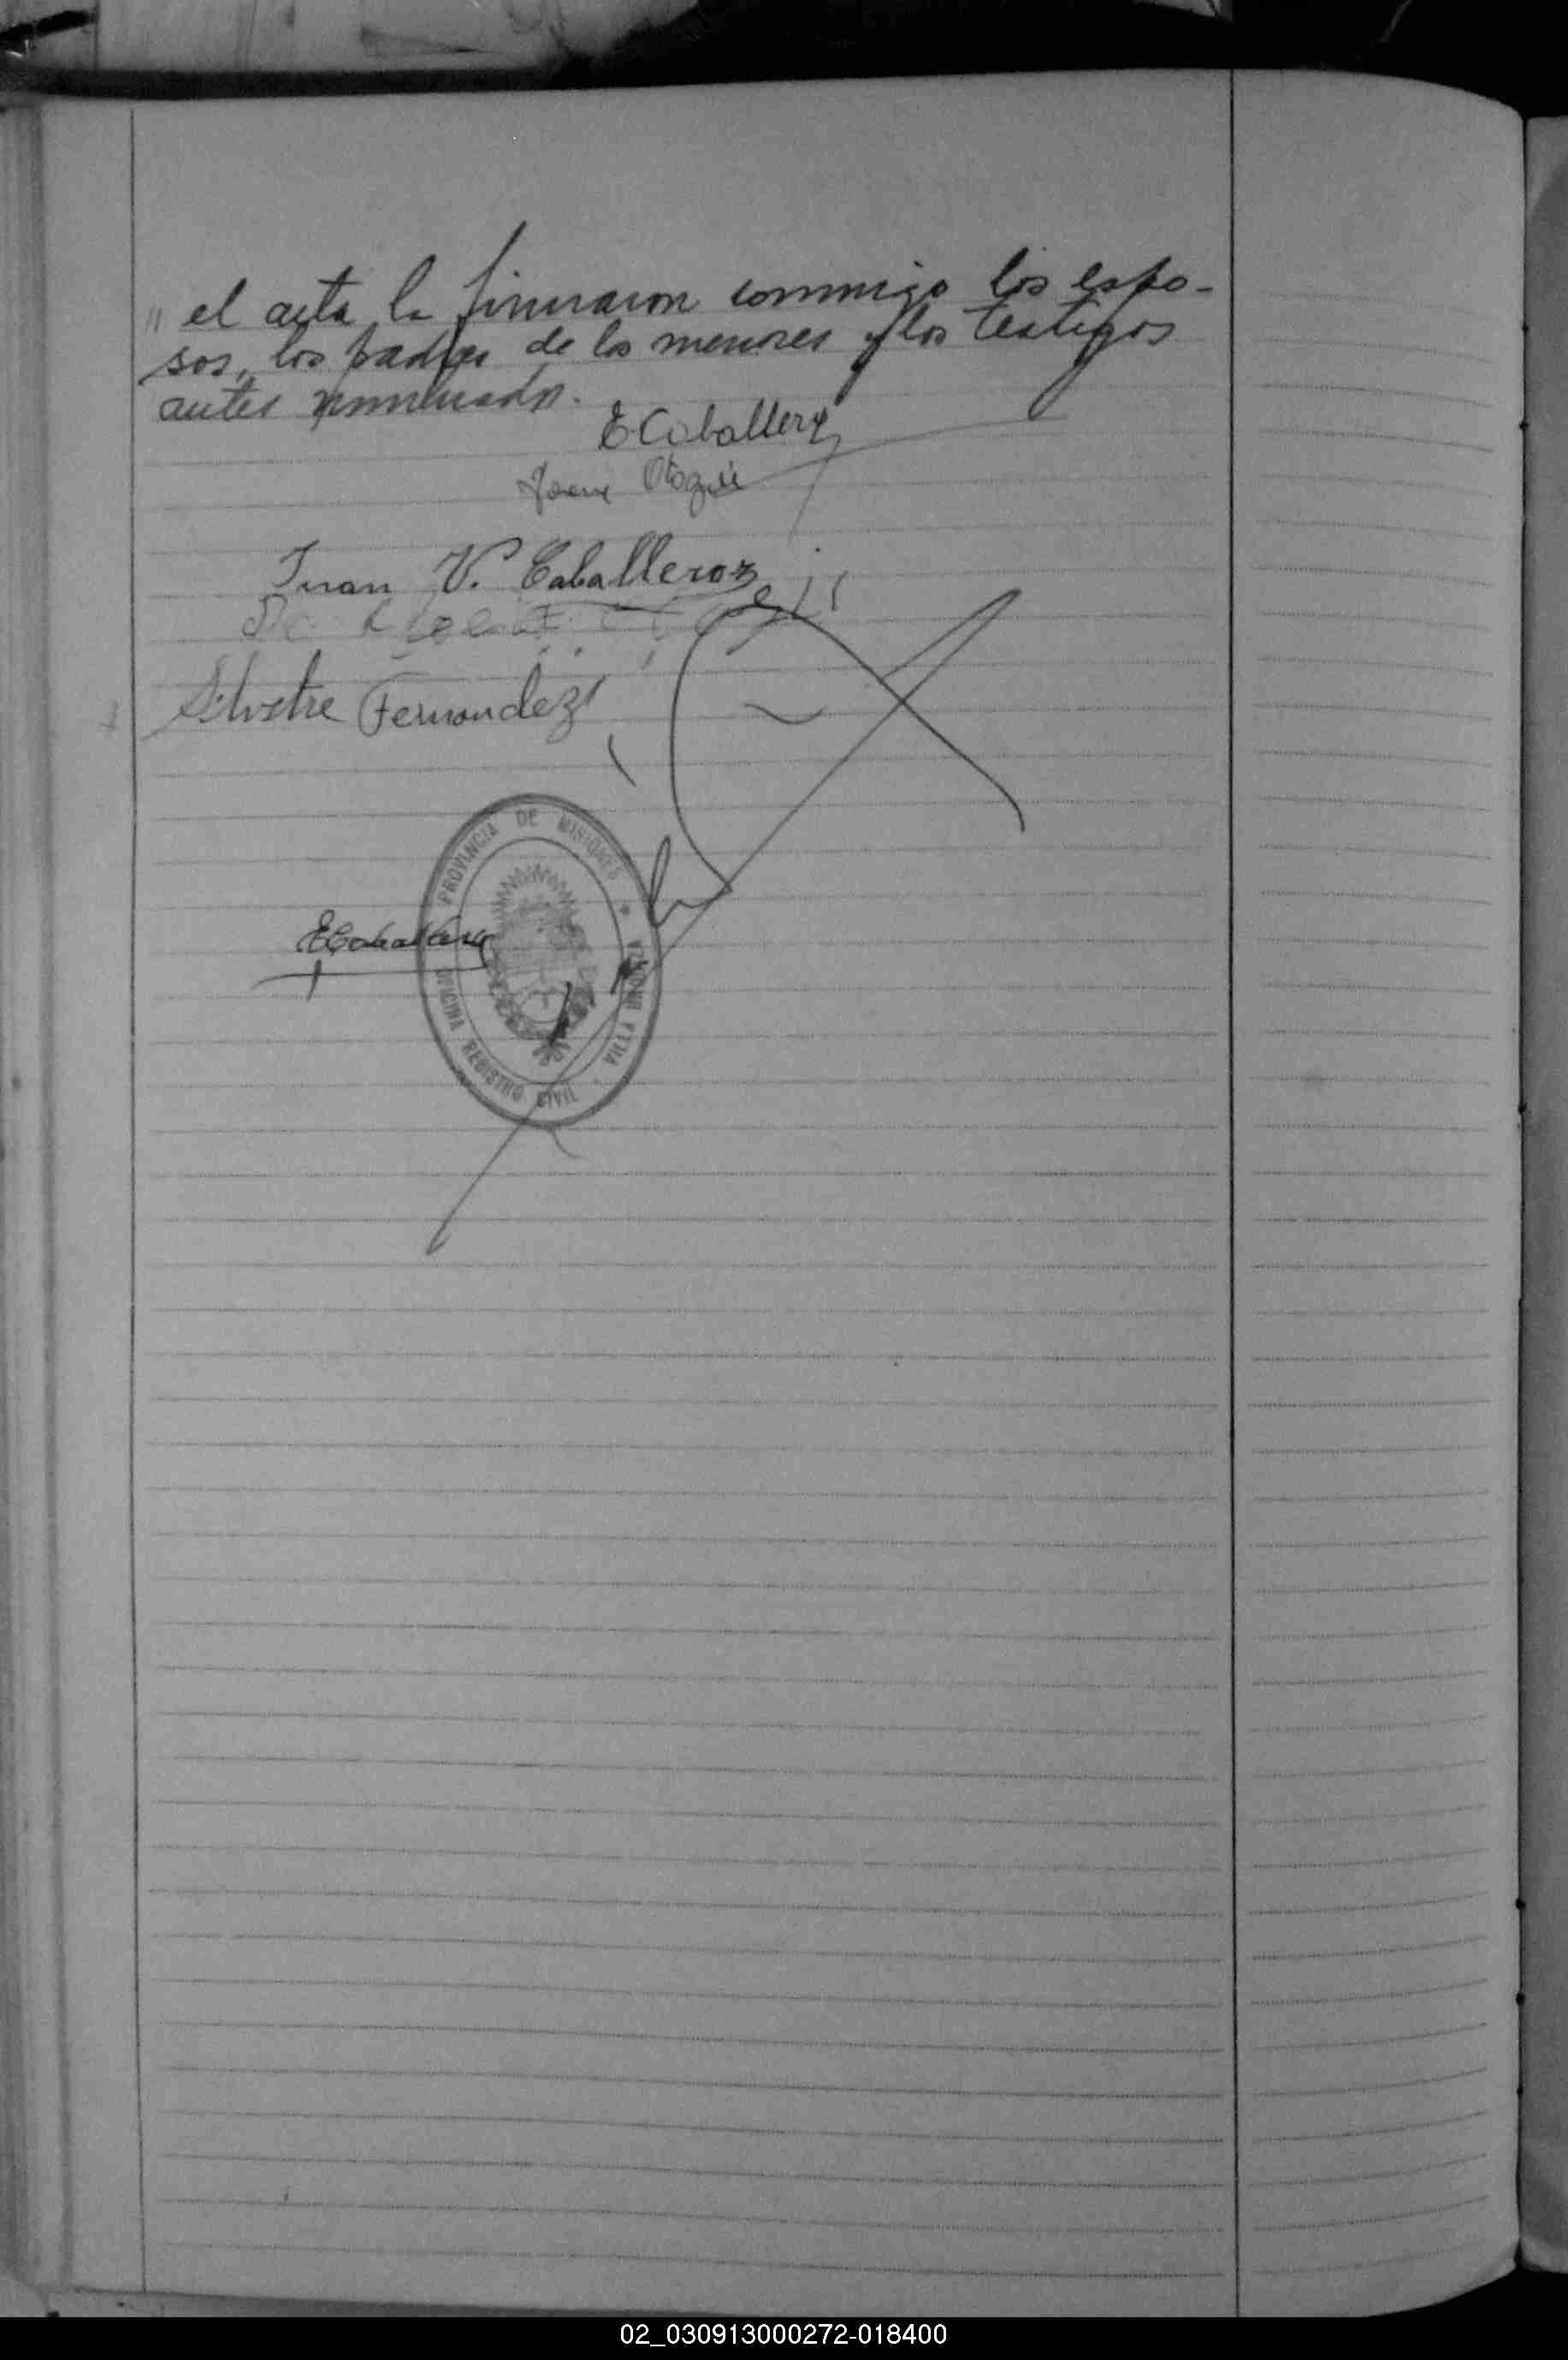 " el acta la firmaron conmigo los espo-
sos, los padres de los menores y los testigos
antes nombrados.
E Caballero
Juan V. Caballero
Silvestre Fernandez
PROVINCIA DE MISIONES * VILLA UNION
OFICINA REGISTRO CIVIL
ECaballero
02_030913000272-018400